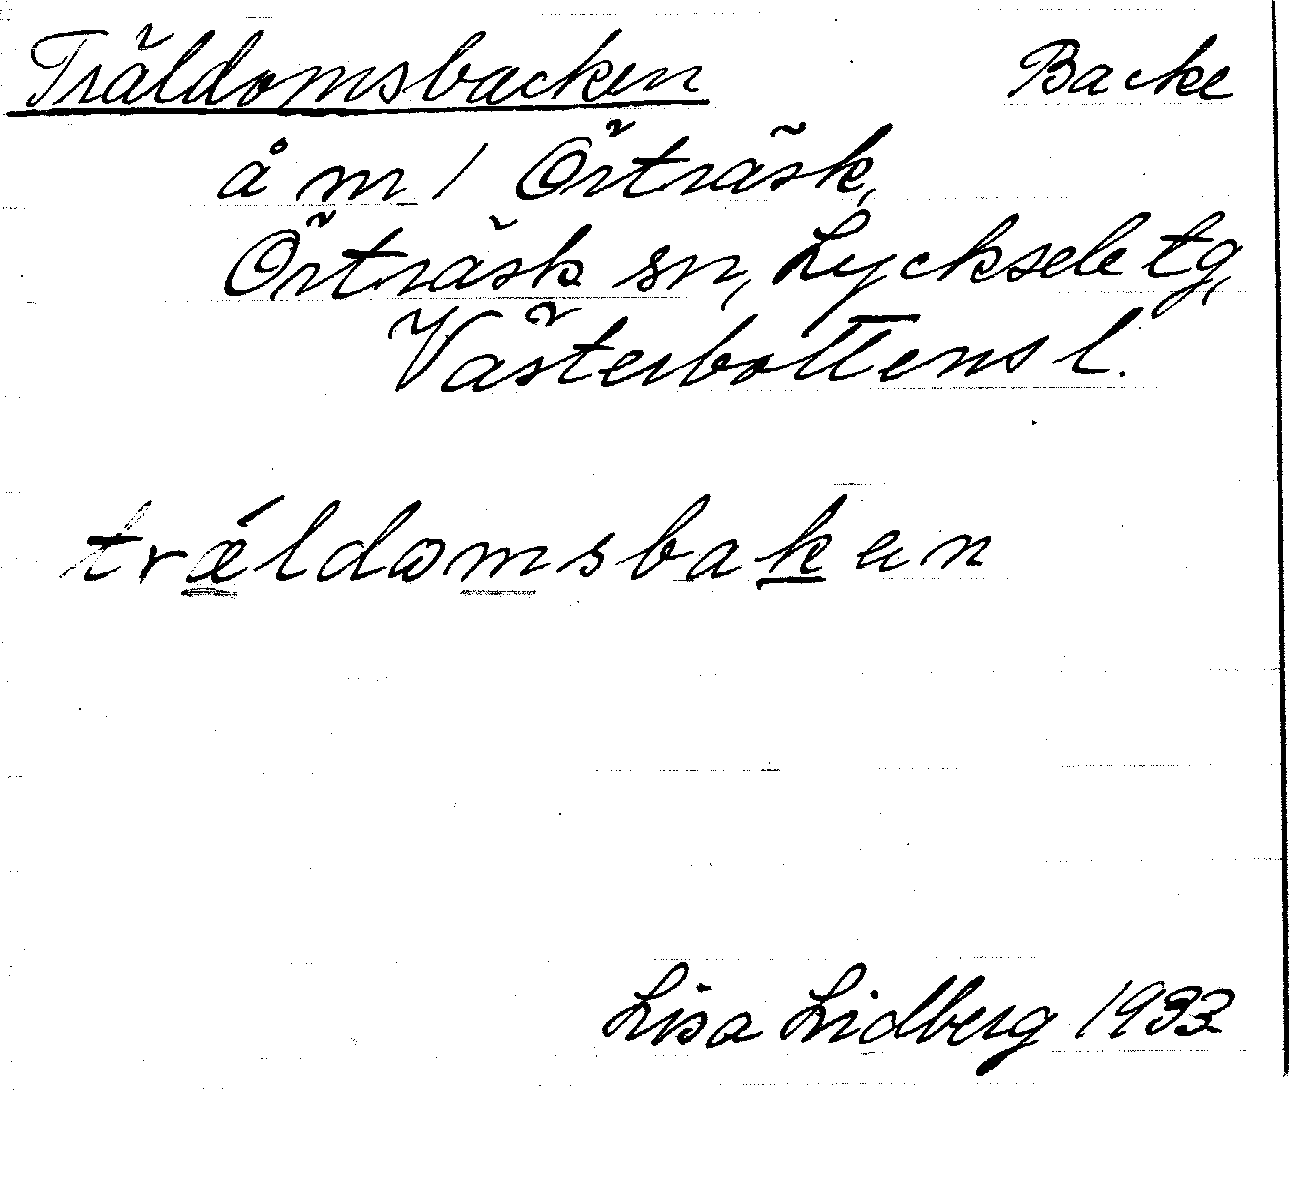 Träldomsbacken Backe
å m / Örträsk,
Örträsk sn, Lycksele tg,
Västerbottens l.
trǽldomsbaken
Lisa Lidberg 1933